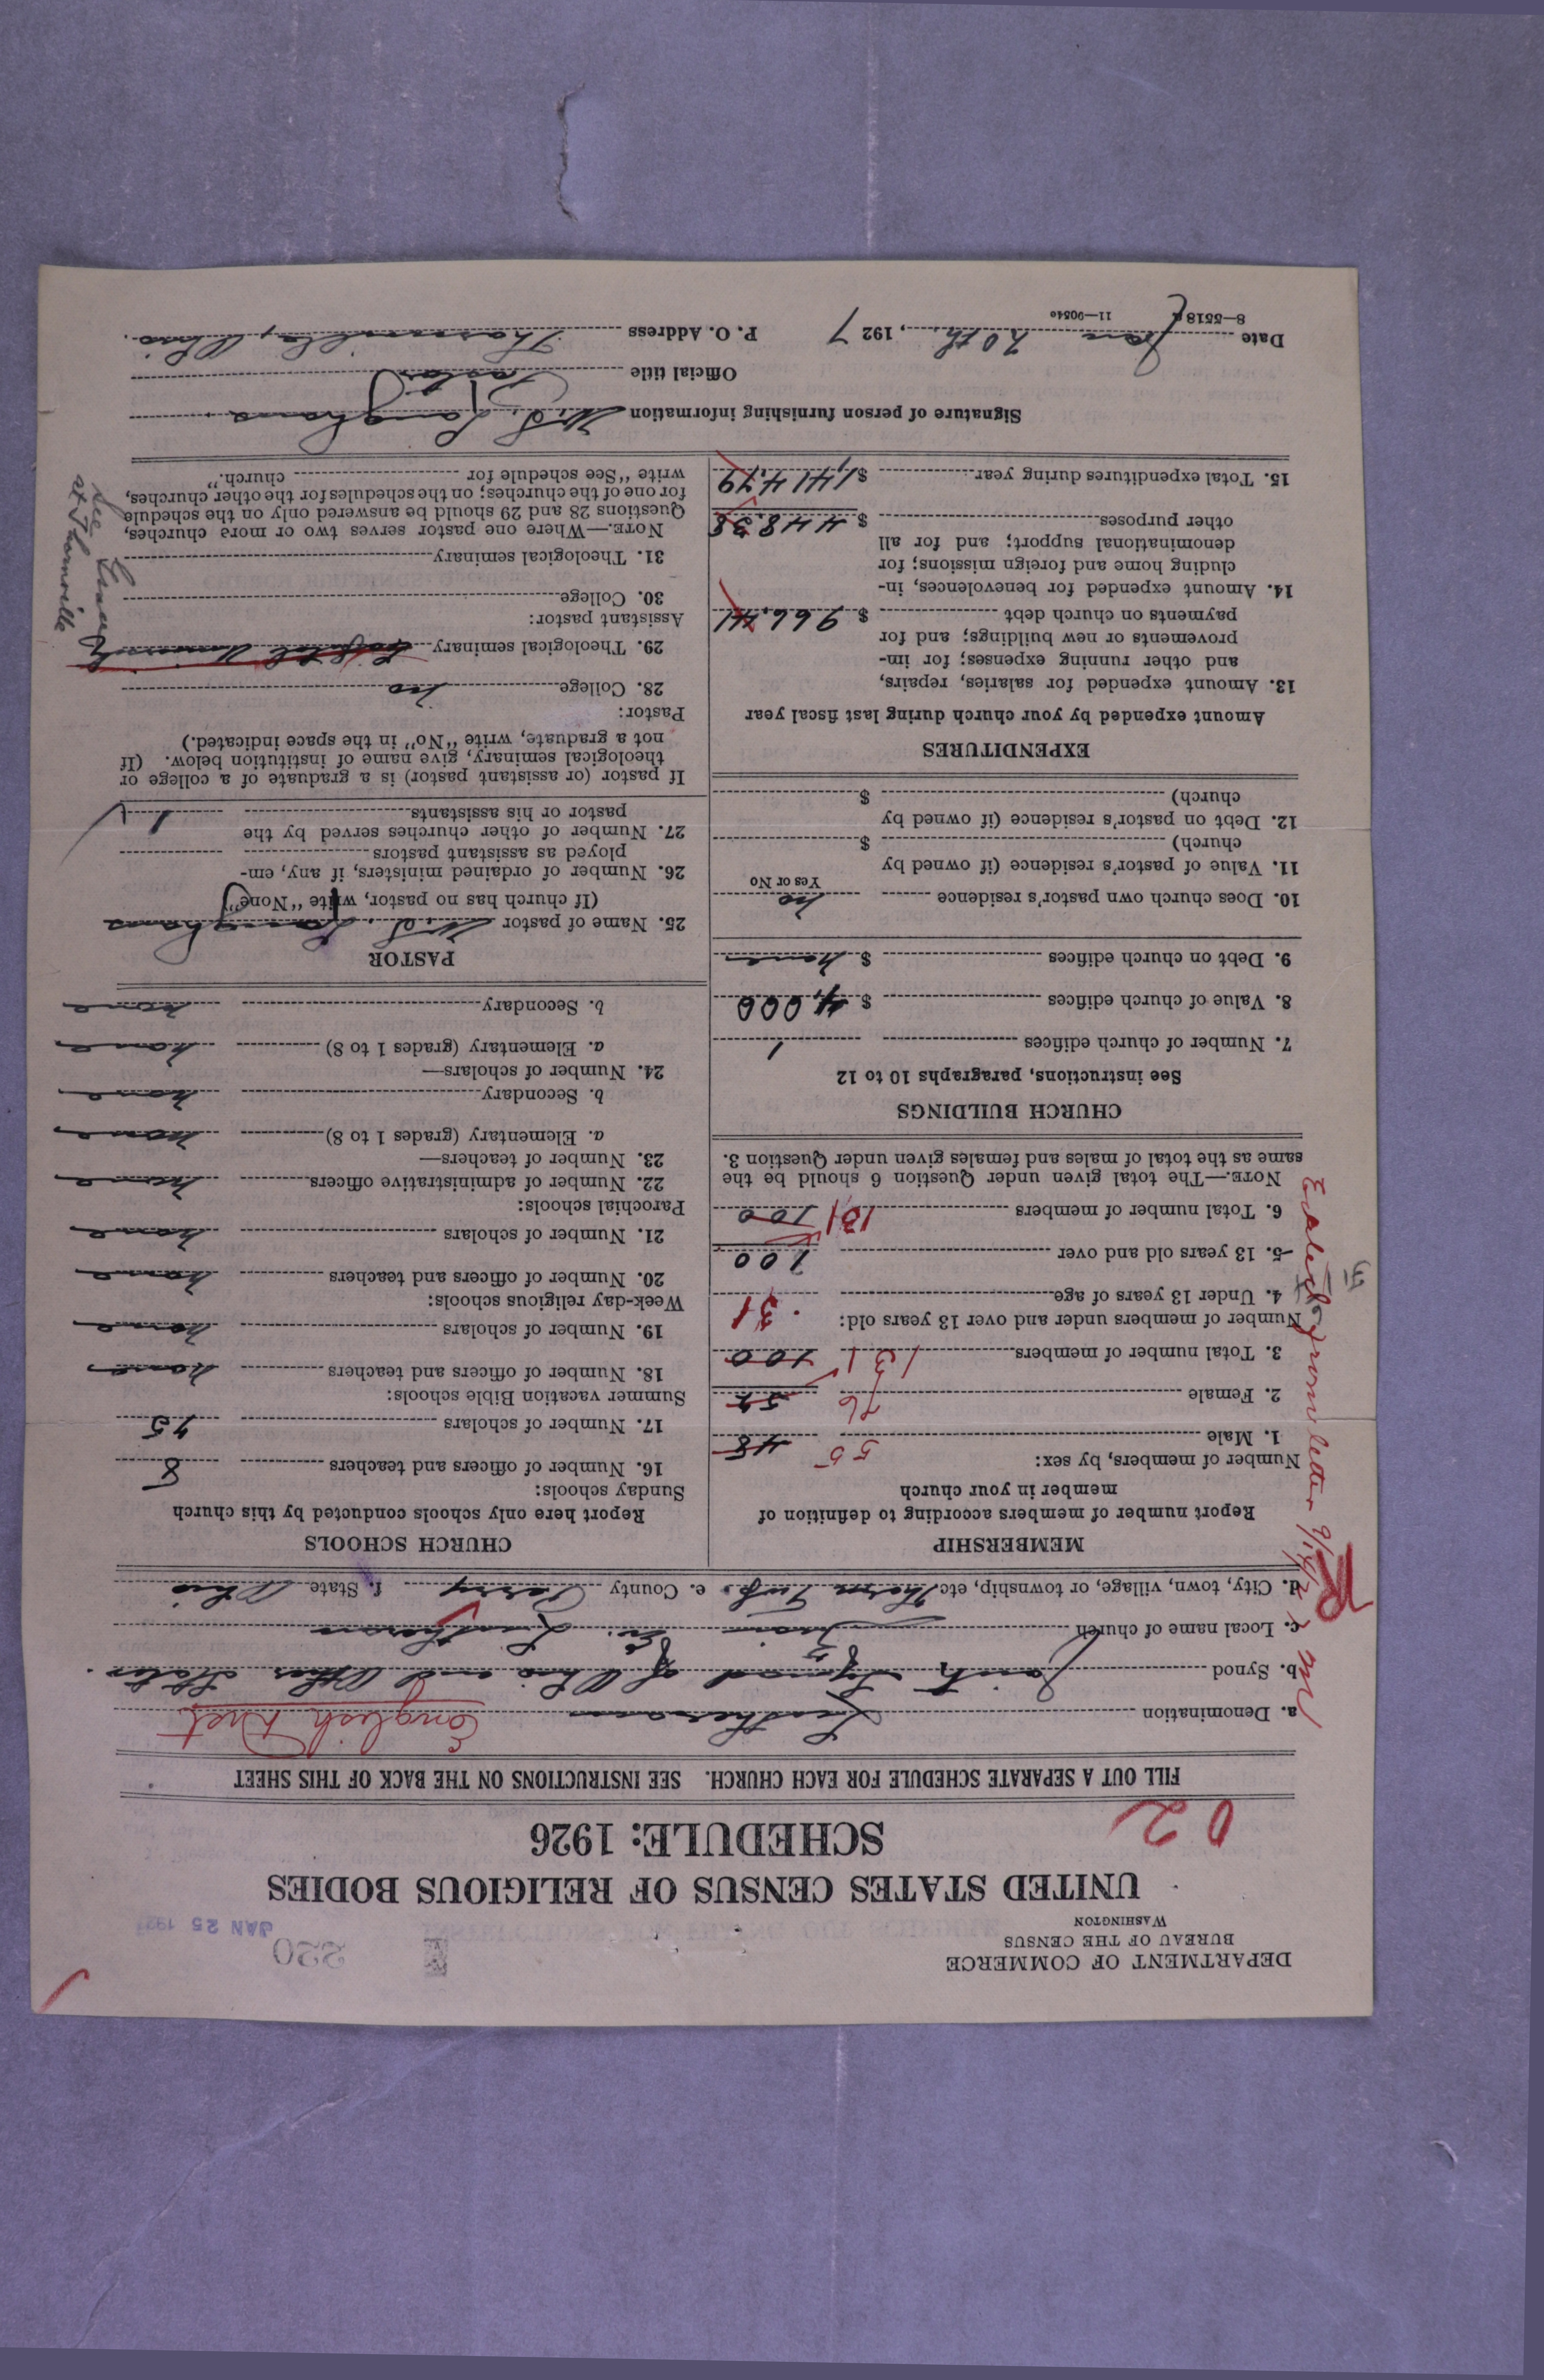 DEPARTMENT OF COMMERCE
BUREAU OF THE CENSUS
WASHINGTON
220
JAN 25 192
UNITED STATES CENSUS OF RELIGIOUS BODIES
SCHEDULE: 1926
02
FILL OUT A SEPARATE SCHEDULE FOR EACH CHURCH. SEE INSTRUCTIONS ON THE BACK OF THIS SHEET
a. Denomination Lutheran English Dist
b. Synod Joint Synod of Ohio and Other States.
c. Local name of church Ev. Lutheran
d. City, town, village, or township, etc Thorn Twp. e. County Perry f. State Ohio
MEMBERSHIP
Report number of members according to definition of
member in your church
Number of members, by sex:
1. Male 55 48
2. Female 76 52
3. Total number of members 131 100
Number of members under and over 13 years old:
4. Under 13 years of age 31
5. 13 years old and over 100
6. Total number of members 131 100
NOTE.—The total given under Question 6 should be the
same as the total of males and females given under Question 3.
CHURCH BUILDINGS
See instructions, paragraphs 10 to 12
7. Number of church edifices 1
8. Value of church edifices $ 4,000
9. Debt on church edifices $ none
10. Does church own pastor's residence no
Yes or No
11. Value of pastor's residence (if owned by
church) $
12. Debt on pastor's residence (if owned by
church) $
EXPENDITURES
Amount expended by your church during last fiscal year
13. Amount expended for salaries, repairs,
and other running expenses; for im-
provements or new buildings; and for
payments on church debt $ 966.41
14. Amount expended for benevolences, in-
cluding home and foreign missions; for
denominational support; and for all
other purposes $ 448.38
15. Total expenditures during year $1,414.79
CHURCH SCHOOLS
Report here only schools conducted by this church
Sunday schools:
16. Number of officers and teachers 8
17. Number of scholars 75
Summer vacation Bible schools:
18. Number of officers and teachers none
19. Number of scholars none
Week-day religious schools:
20. Number of officers and teachers none
21. Number of scholars none
Parochial schools:
22. Number of administrative officers none
23. Number of teachers—
a. Elementary (grades 1 to 8) none
b. Secondary none
24. Number of scholars—
a. Elementary (grades 1 to 8) none
b. Secondary none
PASTOR
25. Name of pastor Langhans
(If church has no pastor, write "None")
26. Number of ordained ministers, if any, em-
ployed as assistant pastors
27. Number of other churches served by the
pastor or his assistants 1
If pastor (or assistant pastor) is a graduate of a college or
theological seminary, give name of institution below. (If
not a graduate, write "No" in the space indicated.)
Pastor:
28. College no
29. Theological seminary Capital University
Assistant pastor:
30. College
31. Theological seminary
NOTE.—Where one pastor serves two or more churches,
Questions 28 and 29 should be answered only on the schedule
for one of the churches; on the schedules for the other churches,
write "See schedule for church."
at Thornville
Signature of person furnishing information Langhans
Official title Pastor
Date Jan 20th, 1927 P. O. Address Thornville, Ohio.
8—5518 11—9054
from letter